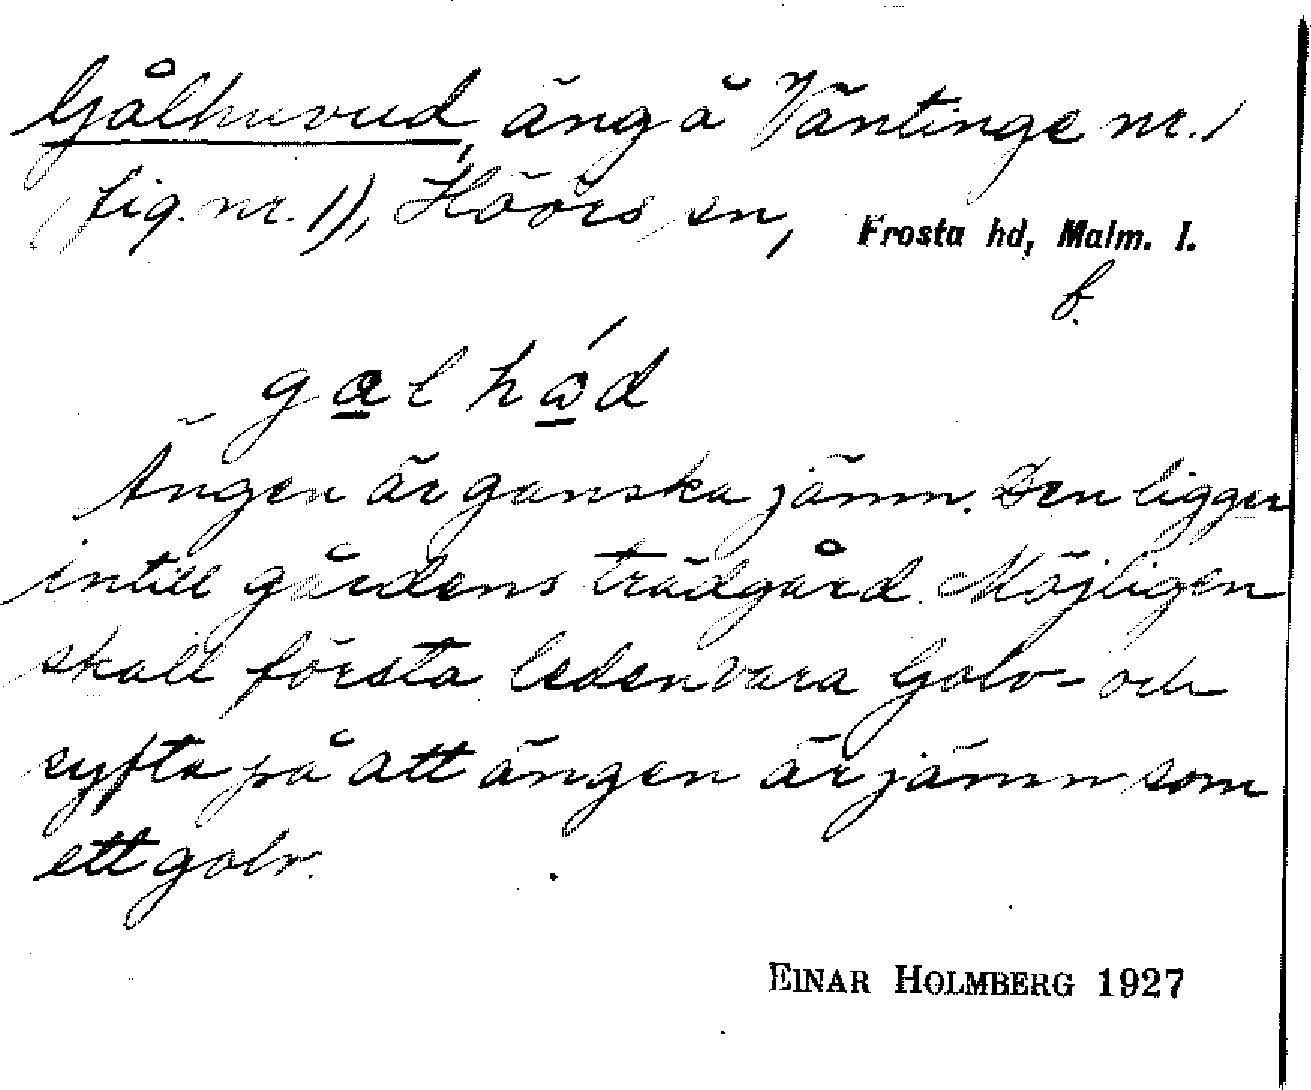 Gålhuvud, äng å Väntinge nr. 1
(fig. nr. 1), Höörs sn, Frosta hd, Malm. l.
b.
gɑlhǿd
Ängen är ganska jämn. Den ligger
intill gårdens trädgård. Möjligen
skall första leden vara Golv- och
syfta på att ängen är jämn som
ett golv.
EINAR HOLMBERG 1927